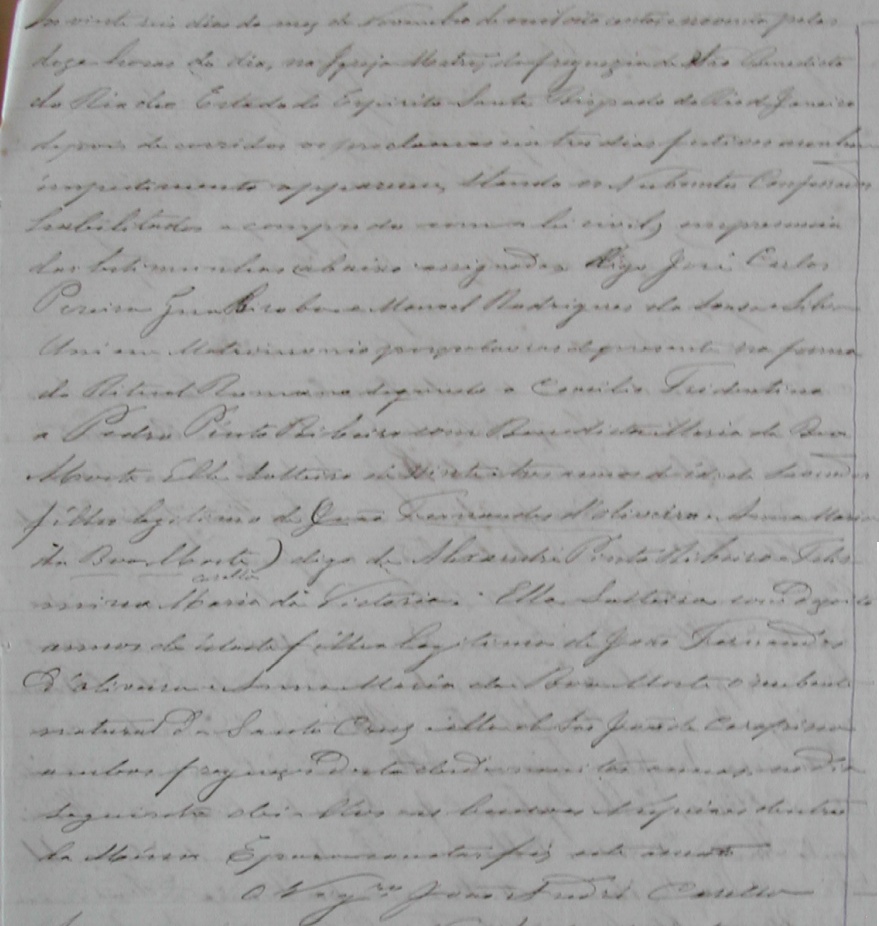 Ao vinte seis dias do mez de Novembro de mil oito centos e noventa pelas
doze horas do dia, na Igreja Matriz da freguezia de São Benedicto
do Riacho Estado do Espirito Santo Bispado do Rio de Janeiro
depois de corridos os proclamas em tres dias festivos sem
impedimento apparecer, stando os Nubentes Confessados
habilitados e comprido com a lei civil, em presencia
das testimunhas abaixo assignadas digo José Carlos
Pereira e Manoel Rodrigues de Souza Silva
Uni em Matrimonio por palavras de presente na forma
do Ritual Romano segundo o Concilio Tridentino
a Pedro Pinto Ribeiro com Benedicta Maria da Boa
Morte. Elle Solteiro de vinte tres annos de idade
filho legitimo de (João Fernandes d'Oliveira e Anna Maria
da Boa Morte) digo de Alexandre Pinto Ribeiro e
Maria da Victoria. Ella Solteira com
annos de idade filha legitima de João Fernandes
d'Oliveira e Anna Maria da Boa Morte o nubente
natural de Santa Cruz e ella de São João de Carapina
ambos freguezes desta desde muitos annos, no dia
seguinte dei-lhes as bençaos Nupciaes dentro
da Missa. E para constar fiz este assento
O Vigro João André Casella